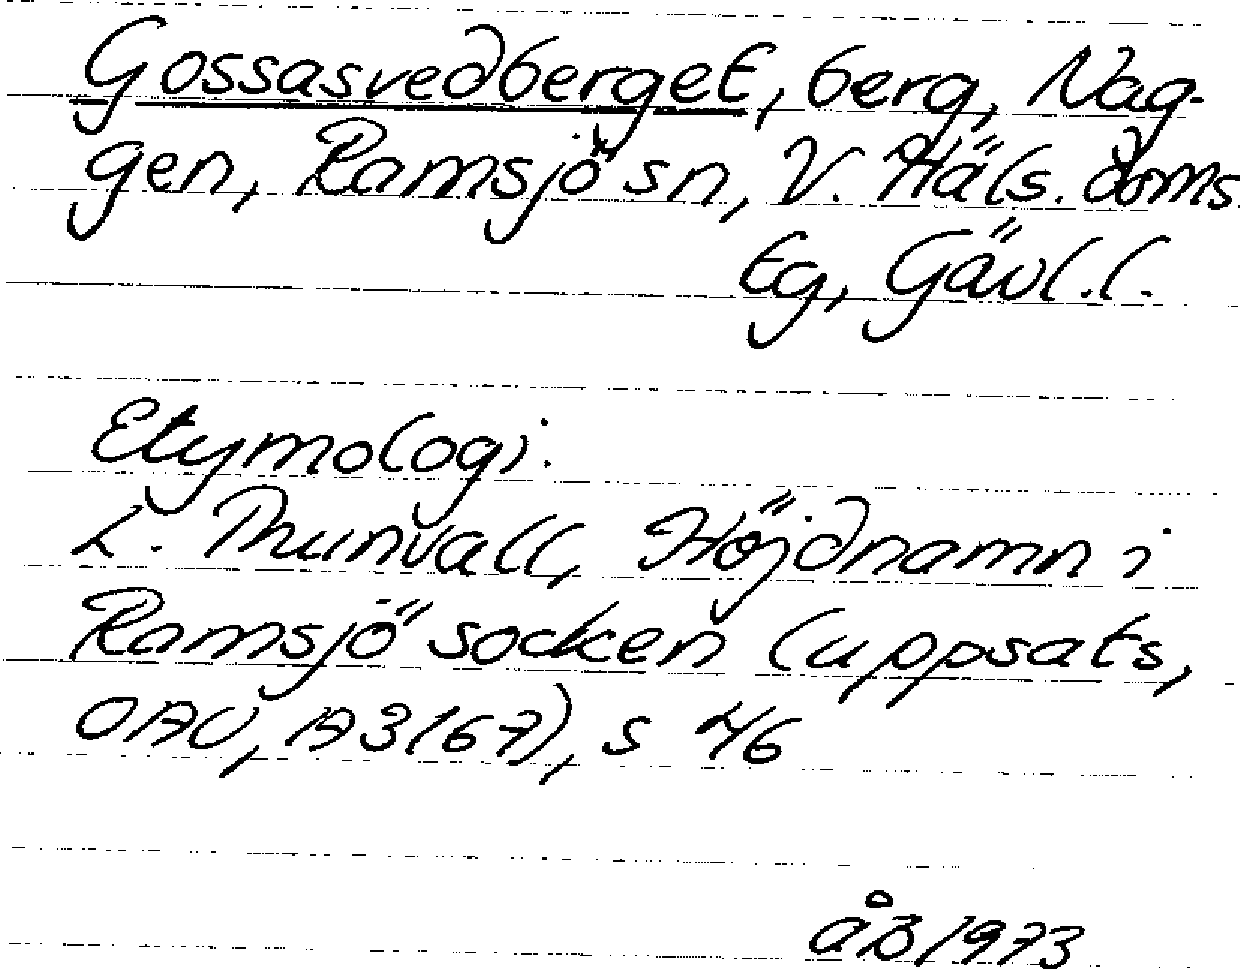 Gossasvedberget, berg, Nag-
gen, Ramsjö sn, V. Häls. doms
Eg, Gävl. l.
Etymologi:
L. Thunvall, Höjdnamn i
Ramsjö socken (uppsats,
OAU, A3167), s 46
åB 1973